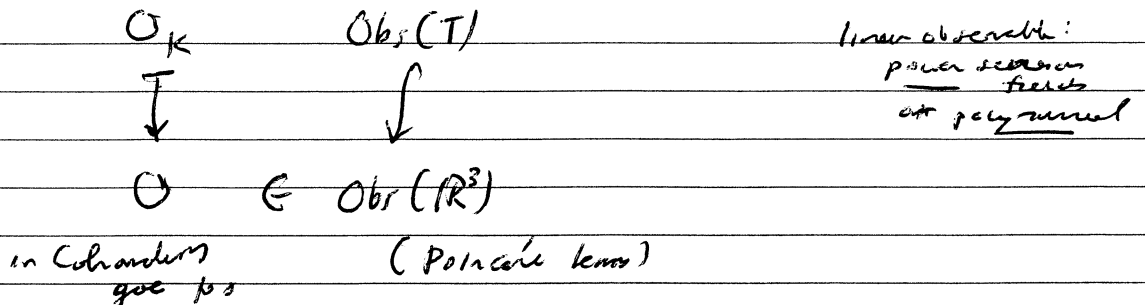 O_K Obs(T)
linear observable:
power series on
fields
polynomial
↧ ↓
O ∈ Obs(ℝ³)
in Cohomology
(Poincaré lemma)